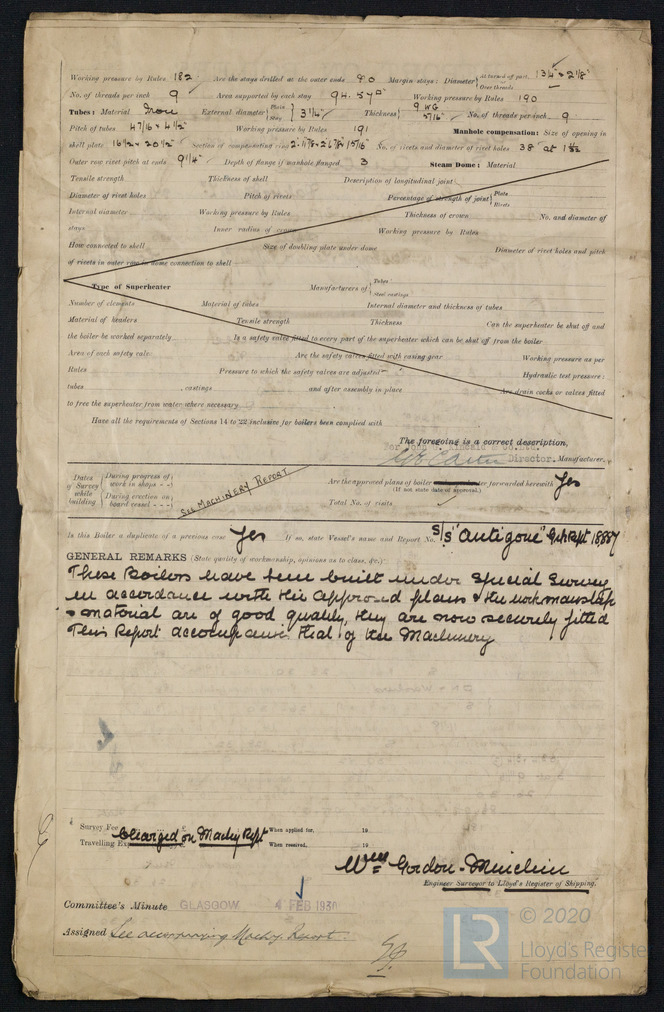 Working pressure by Rules 182 Are the stays drilled at the outer ends No Margin stays: Diameter { At turned off part, 1 3/4" & 2 1/8"
Over threads
No. of threads per inch 9 Area supported by each stay 94.5 Working pressure by Rules 190
Tubes: Material Iron External diameter { Plain Stay } 3 1/4" Thickness { 9 WG 5/16" No. of threads per inch 9
Pitch of tubes 4 7/16 × 4 1/2" Working pressure by Rules 191 Manhole compensation: Size of opening in
shell plate 16 1/2 × 20 1/2" Section of compensating ring No. of rivets and diameter of rivet holes 38 at
Outer row rivet pitch at ends 9 1/4" Depth of flange if manhole flanged 3 Steam Dome: Material
Tensile strength Thickness of shell Description of longitudinal joint
Diameter of rivet holes Pitch of rivets Percentage of strength of joint { Plate Rivets
Internal diameter Working pressure by Rules Thickness of crown No. and diameter of
stays Inner radius of crown Working pressure by Rules
How connected to shell Size of doubling plate under dome Diameter of rivet holes and pitch
of rivets in outer row in dome connection to shell
Type of Superheater Manufacturers of { Tubes Steel castings
Number of elements Material of tubes Internal diameter and thickness of tubes
Material of headers Tensile strength Thickness Can the superheater be shut off and
the boiler be worked separately Is a safety valve fitted to every part of the superheater which can be shut off from the boiler
Area of each safety valve Are the safety valves fitted with easing gear Working pressure as per
Rules Pressure to which the safety valves are adjusted Hydraulic test pressure:
tubes , castings and after assembly in place Are drain cocks or valves fitted
to free the superheater from water where necessary
Have all the requirements of Sections 14 to 22 inclusive for boilers been complied with
The foregoing is a correct description,
Director. Manufacturer.
Dates of Survey while building { During progress of work in shops - - During erection on board vessel - - - } See Machinery Report
Are the approved plans of boiler forwarded herewith Yes
(If not state date of approval.)
Total No. of visits
Is this Boiler a duplicate of a previous case Yes If so, state Vessel's name and Report No. S/S "Antigone" Gck Rpt 18887
GENERAL REMARKS (State quality of workmanship, opinions as to class, &c.)
These Boilers have been built under Special Survey
in accordance with the approved plans & the workmanship
& material are of good quality, they are now securely fitted
This Report accompanies that of the Machinery
Survey Fee Charged on Machy Rept When applied for, 19
Travelling Expenses When received, 19
Wm Gordon-Minchin
Engineer Surveyor to Lloyd's Register of Shipping.
Committee's Minute GLASGOW 4 FEB 1930
Assigned See accompanying Machy Report.
© 2020
LR
Lloyd's Register
Foundation